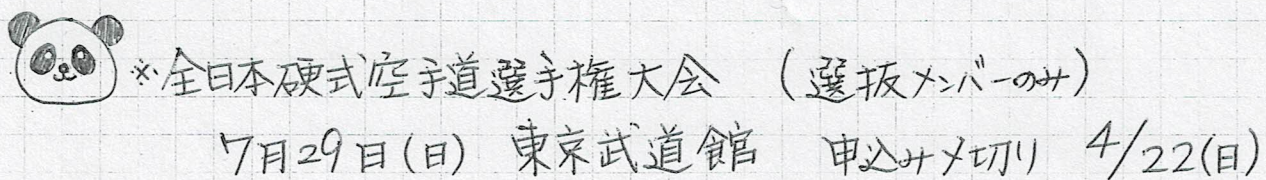 ※全日本硬式空手道選手権大会 （選抜メンバーのみ）
7月29日（日） 東京武道館 申込み〆切り 4/22（日）